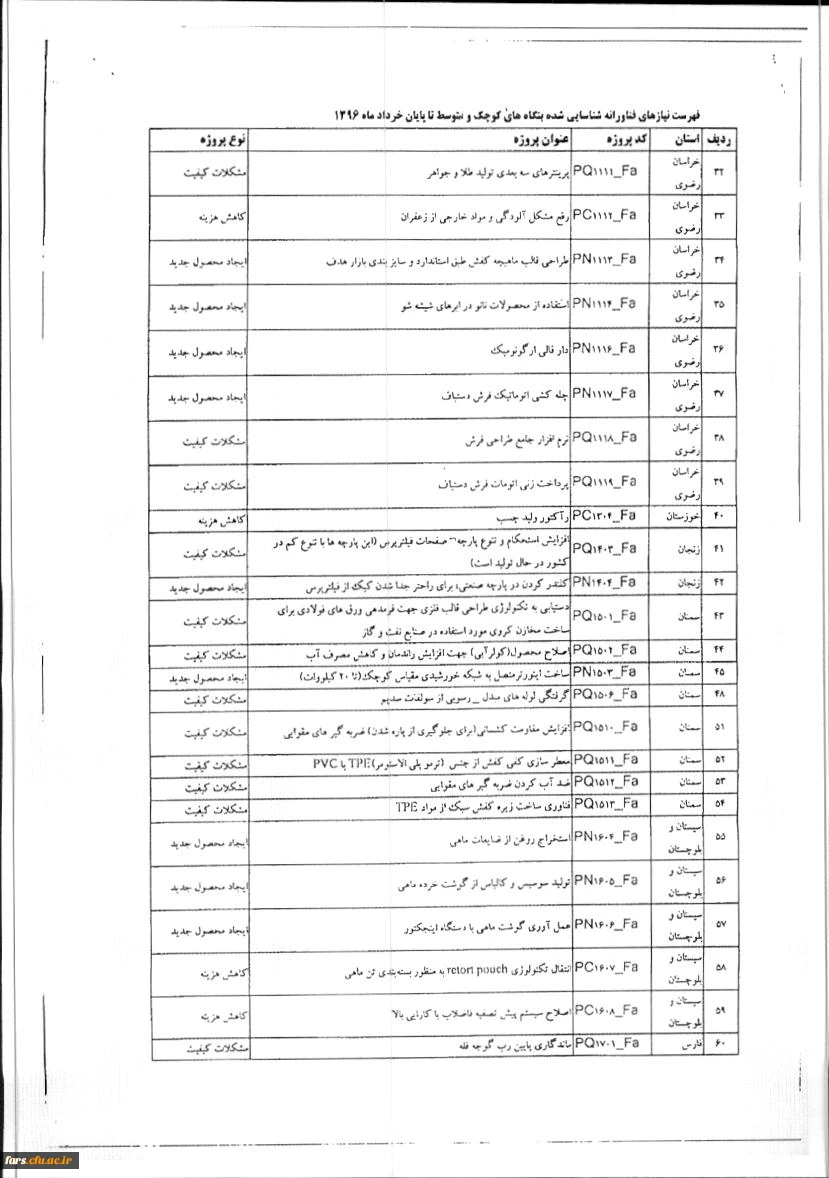 فهرست نیازهای فناورانه شناسایی شده بنگاه های کوچک و متوسط تا پایان خرداد ماه ۱۳۹۶
ردیف استان کد پروژه عنوان پروژه نوع پروژه
۳۲ خراسان رضوی PQ۱۱۱۱_Fa پرینترهای سه بعدی تولید طلا و جواهر مشکلات کیفیت
۳۳ خراسان رضوی PC۱۱۱۲_Fa رفع مشکل آلودگی و مواد خارجی از زعفران کاهش هزینه
۳۴ خراسان رضوی PN۱۱۱۳_Fa طراحی قالب ماهیچه کفش طبق استاندارد و سایز بندی بازار هدف ایجاد محصول جدید
۳۵ خراسان رضوی PN۱۱۱۴_Fa استفاده از محصولات نانو در ابرهای شیشه شو ایجاد محصول جدید
۳۶ خراسان رضوی PN۱۱۱۶_Fa دار قالی ارگونومیک ایجاد محصول جدید
۳۷ خراسان رضوی PN۱۱۱۷_Fa چله کشی اتوماتیک فرش دستباف ایجاد محصول جدید
۳۸ خراسان رضوی PQ۱۱۱۸_Fa نرم افزار جامع طراحی فرش مشکلات کیفیت
۳۹ خراسان رضوی PQ۱۱۱۹_Fa پرداخت زنی اتومات فرش دستباف مشکلات کیفیت
۴۰ خوزستان PC۱۳۰۴_Fa رآکتور ولید چسب کاهش هزینه
۴۱ زنجان PQ۱۴۰۳_Fa افزایش استحکام و تنوع پارچه صفحات فیلترپرس (این پارچه ها با تنوع کم در
کشور در حال تولید است) مشکلات کیفیت
۴۲ زنجان PN۱۴۰۴_Fa کلندر کردن در پارچه صنعتی، برای راحتر جدا شدن کیک از فیلترپرس ایجاد محصول جدید
۴۳ سمنان PQ۱۵۰۱_Fa دستیابی به تکنولوژی طراحی قالب فلزی جهت فرمدهی ورق های فولادی برای
ساخت مخازن کروی مورد استفاده در صنایع نفت و گاز مشکلات کیفیت
۴۴ سمنان PQ۱۵۰۲_Fa اصلاح محصول(کولرآبی) جهت افزایش راندمان و کاهش مصرف آب مشکلات کیفیت
۴۵ سمنان PN۱۵۰۳_Fa ساخت اینورتر متصل به شبکه خورشیدی مقیاس کوچک(تا ۲۰ کیلووات) ایجاد محصول جدید
۴۸ سمنان PQ۱۵۰۶_Fa گرفتگی لوله های مبدل _ رسوبی از سولفات سدیم مشکلات کیفیت
۵۱ سمنان PQ۱۵۱۰_Fa افزایش مقاومت کشسانی(برای جلوگیری از پاره شدن) ضربه گیر های مقوایی مشکلات کیفیت
۵۲ سمنان PQ۱۵۱۱_Fa معطر سازی کفی کفش از جنس (ترمو پلی الاستومر)TPE یا PVC مشکلات کیفیت
۵۳ سمنان PQ۱۵۱۲_Fa ضد آب کردن ضربه گیر های مقوایی مشکلات کیفیت
۵۴ سمنان PQ۱۵۱۳_Fa فناوری ساخت زیره کفش سبک از مواد TPE مشکلات کیفیت
۵۵ سیستان و بلوچستان PN۱۶۰۴_Fa استخراج روغن از ضایعات ماهی ایجاد محصول جدید
۵۶ سیستان و بلوچستان PN۱۶۰۵_Fa تولید سوسیس و کالباس از گوشت خرده ماهی ایجاد محصول جدید
۵۷ سیستان و بلوچستان PN۱۶۰۶_Fa عمل آوری گوشت ماهی با دستگاه اینجکتور ایجاد محصول جدید
۵۸ سیستان و بلوچستان PC۱۶۰۷_Fa انتقال تکنولوژی retort pouch به منظور بسته‌بندی تن ماهی کاهش هزینه
۵۹ سیستان و بلوچستان PC۱۶۰۸_Fa اصلاح سیستم پیش تصفیه فاضلاب با کارایی بالا کاهش هزینه
۶۰ فارس PQ۱۷۰۱_Fa ماندگاری پایین رب گوجه فله مشکلات کیفیت
fars.cfu.ac.ir